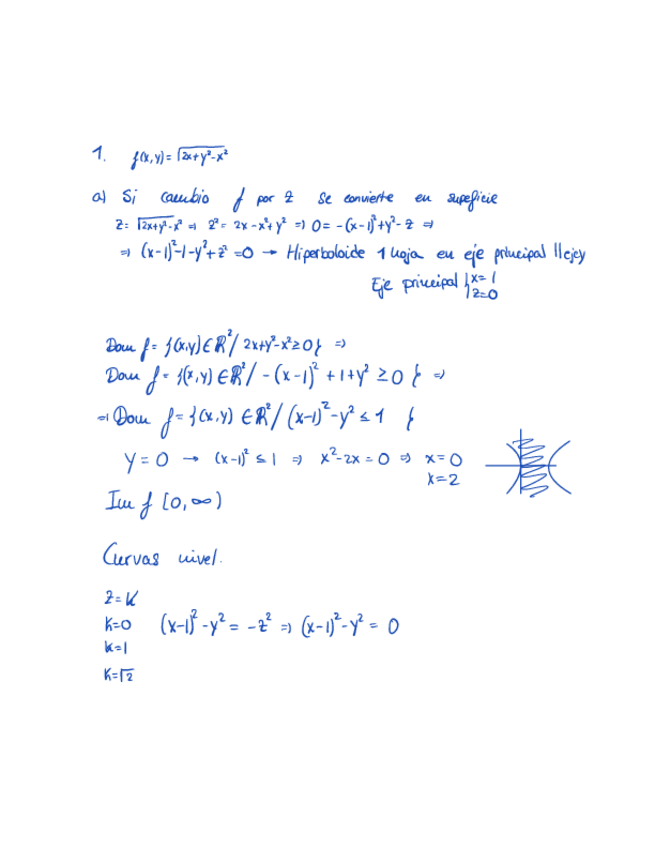 1. f(x,y) = √2x+y²-x²
a) Si cambio f por z se convierte en supeficie
z = √2x+y²-x² ⇒ z² = 2x-x²+y² ⇒ 0 = -(x-1)²+y²-z ⇒
⇒ (x-1)²-1-y²+z² = 0 → Hiperboloide 1 hoja en eje principal || ejey
Eje principal { x=1
z=0
Dom f = {(x,y) ∈ R² / 2x+y²-x² ≥ 0} ⇒
Dom f = {(x,y) ∈ R² / -(x-1)² + 1 + y² ≥ 0 } ⇒
⇒ Dom f = {(x,y) ∈ R² / (x-1)² - y² ≤ 1 }
y = 0 → (x-1)² ≤ 1 ⇒ x²-2x = 0 ⇒ x = 0
x = 2
Im f [0, ∞)
Curvas nivel.
z = K
K=0 (x-1)² - y² = -z² ⇒ (x-1)² - y² = 0
K=1
K=√2